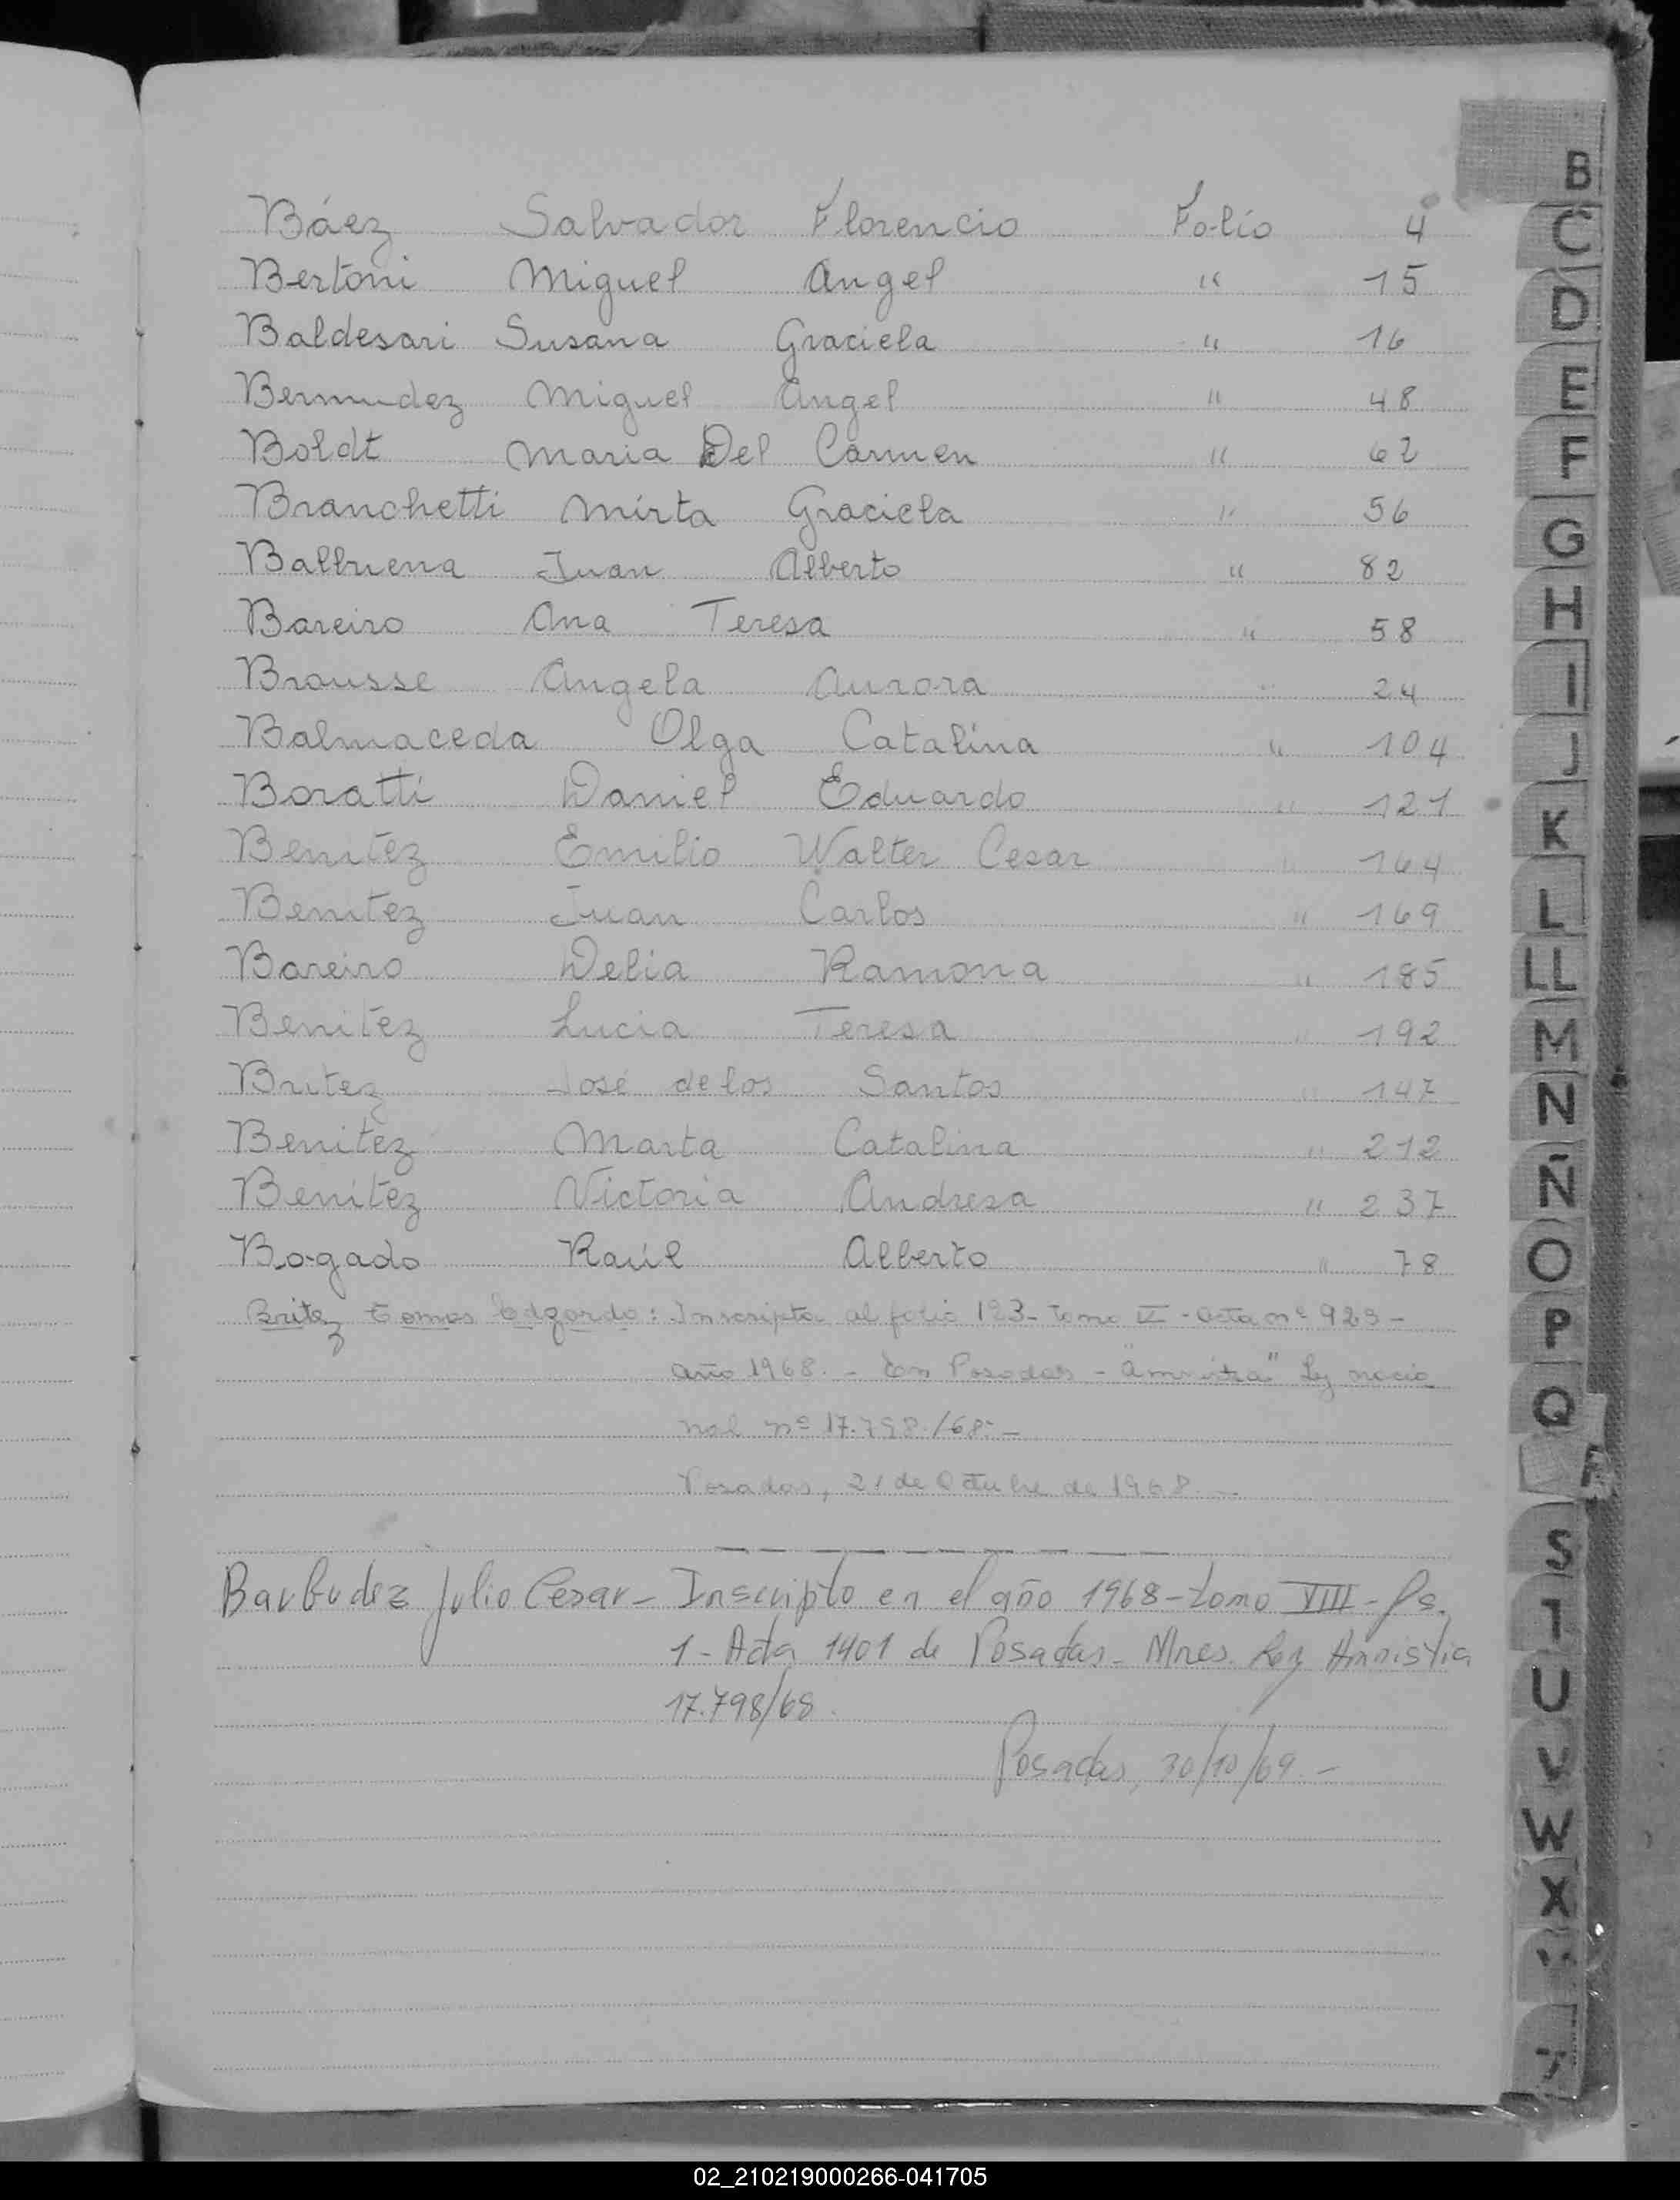 Báez Salvador Florencio Folio 4
Bertoni Miguel Angel " 15
Baldesari Susana Graciela " 16
Bermudez Miguel Angel " 48
Boldt Maria Del Carmen " 62
Branchetti Mirta Graciela " 56
Balbuena Juan Alberto " 82
Bareiro Ana Teresa " 58
Brousse Angela Aurora " 24
Balmaceda Olga Catalina " 104
Boratti Daniel Eduardo " 121
Benitez Emilio Walter Cesar " 164
Benitez Juan Carlos " 169
Bareiro Delia Ramona " 185
Benitez Lucia Teresa " 192
Britez José de los Santos " 147
Benitez Marta Catalina " 212
Benítez Victoria Andresa " 237
Bogado Raúl Alberto " 78
Britez Tomas Edgardo: Inscripto al folio 123- tomo - acta nº 923-
año 1968.- En Posadas - "amnistia" Ley nacio
nal nº 17.798./68.-
Posadas, 21 de Octubre de 1968.-
Barbudez Julio Cesar- Inscripto en el año 1968- tomo VIII- fs.
1- Acta 1401 de Posadas- Mnes. Ley Amnistia
17.798/68.
Posadas, 30/10/69.-
B
C
D
E
F
G
H
I
J
K
L
LL
M
N
Ñ
O
P
Q
R
S
T
U
V
W
X
Y
Z
02_210219000266-041705